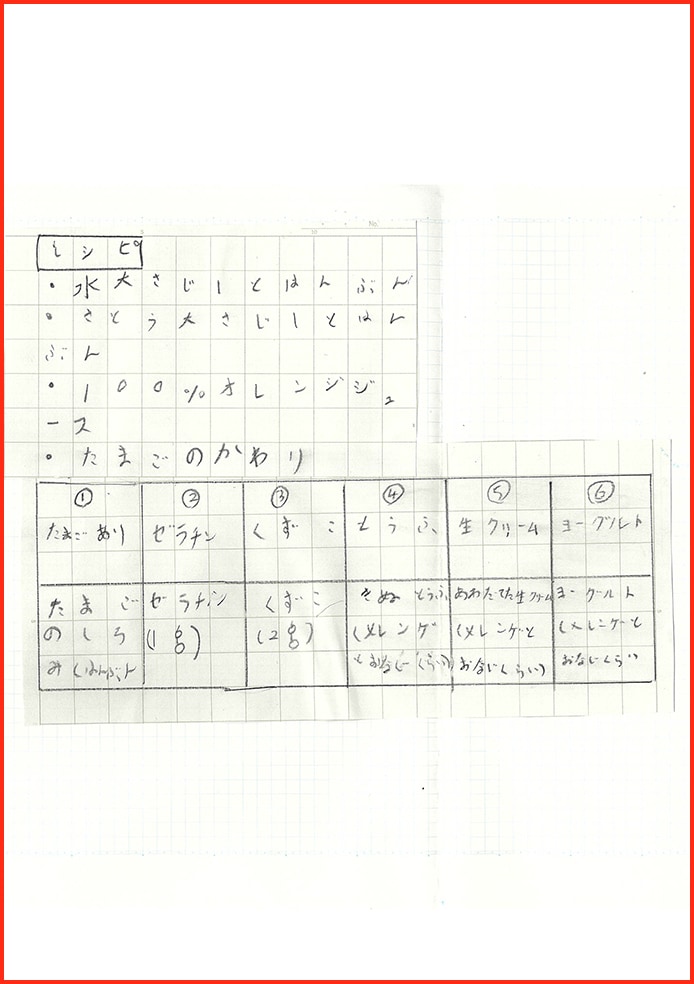 No.
レシピ
・水大さじ1とはんぶん
・さとう大さじ1とはん
ぶん
・100%オレンジジュ
ース
・たまごのかわり
① ② ③ ④ ⑤ ⑥
たまごあり ゼラチン くずこ とうふ 生クリーム ヨーグルト
たまご ゼラチン くずこ きぬとうふ あわたてた生クリーム ヨーグルト
のしろ (1g) (2g) (メレンゲ (メレンゲと (メレンゲと
み(はんぶん とおなじくらい) おなじくらい) おなじくらい